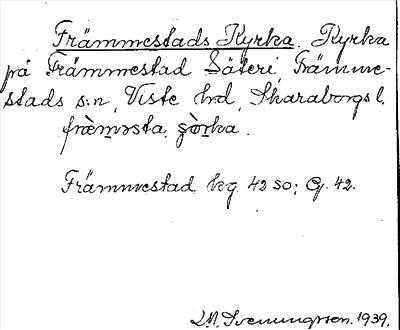 Främmestads Kyrka. Kyrka
på Främmestad Säteri, Främme-
stads s:n, Viste hrd, Skaraborgs l.
fræ̀mǝsta ço̱rka.
Främmestad kg. 42 SO; G. 42.
L.M. Svenungsson. 1939.